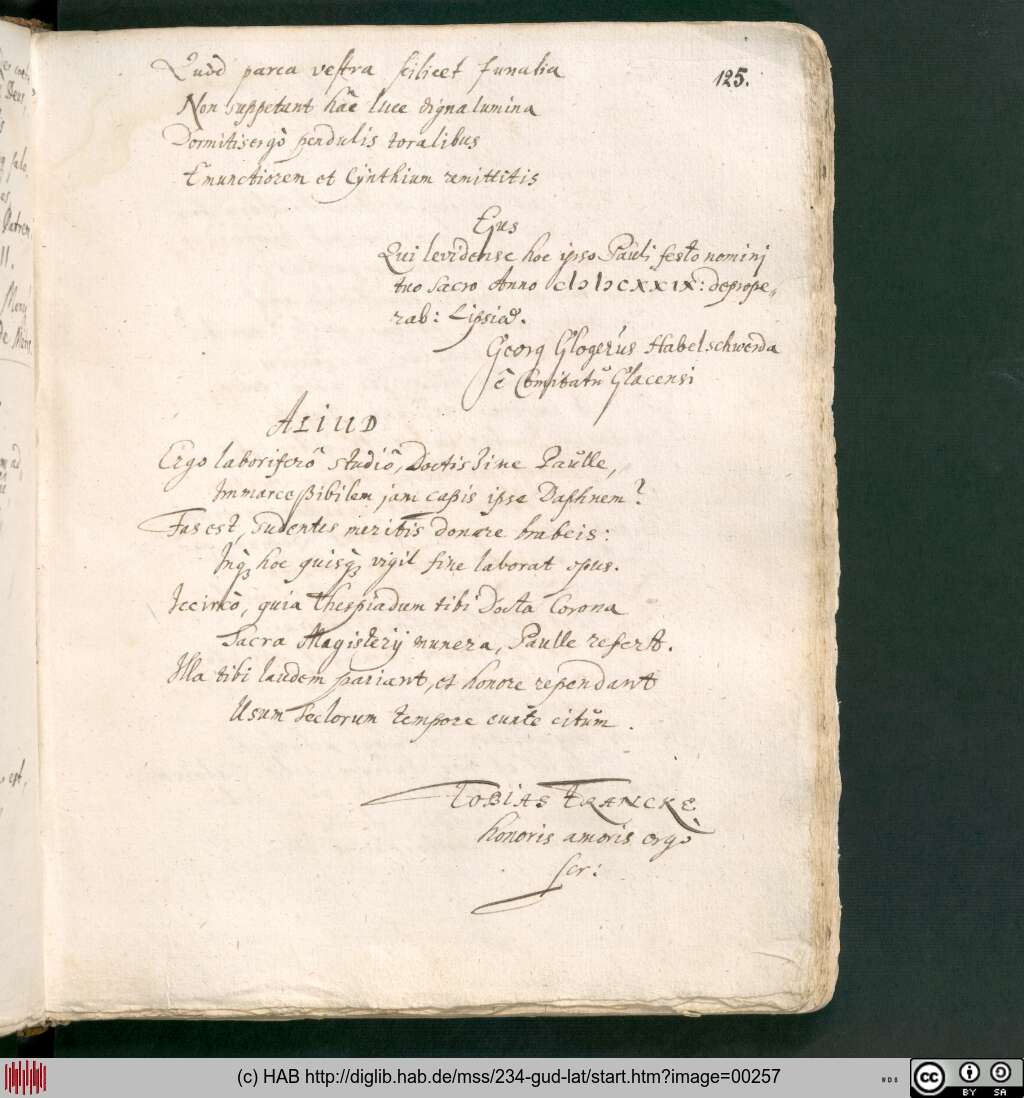 125.
Quòd parca vestra scilicet funalia
Non suppetunt hâc luce digna lumina
Dormitis ergò pendulis toralibus
Emunctiorem et Cÿnthium remittitis
Ejus
Qui levidense hoc ipso Pauli festo nominj
tuo sacro Anno cIↄ Iↄ cXXIX: deprope„
rab: Lipsiæ.
Georg Glogerus Habelschwerda
è Comitatŭ Glacensi
ALIUD
Ergo laboriferô studiô, Doctissime Paŭlle,
Immarceßibilem jam capis ipse Daphnem?
Fas est, sudentes meritis donare brabeis:
Inq3 hoc quisq3 vigil fine laborat opus.
Iccircò, quia Thespiadum tibi Docta Corona
Sacra Magisterij munera, Paulle refert.
Illa tibi laudem pariant, et honore rependant
Usum seclorum tempore citŭm.
TOBIAS FRANCKE
honoris amoris ergò
scr:
(c) HAB http://diglib.hab.de/mss/234-gud-lat/start.htm?image=00257
cc
BY SA